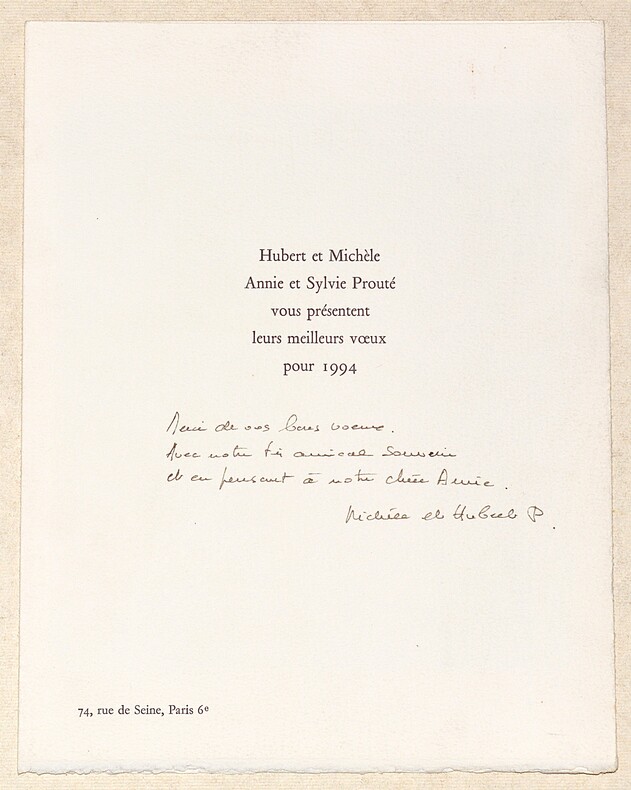 Hubert et Michèle
Annie et Sylvie Prouté
vous présentent
leurs meilleurs vœux
pour 1994
Merci de vos bons voeux.
Avec notre très amical Souvenir
et en pensant à notre chère Annie.
Michèle et Hubert P.
74, rue de Seine, Paris 6e